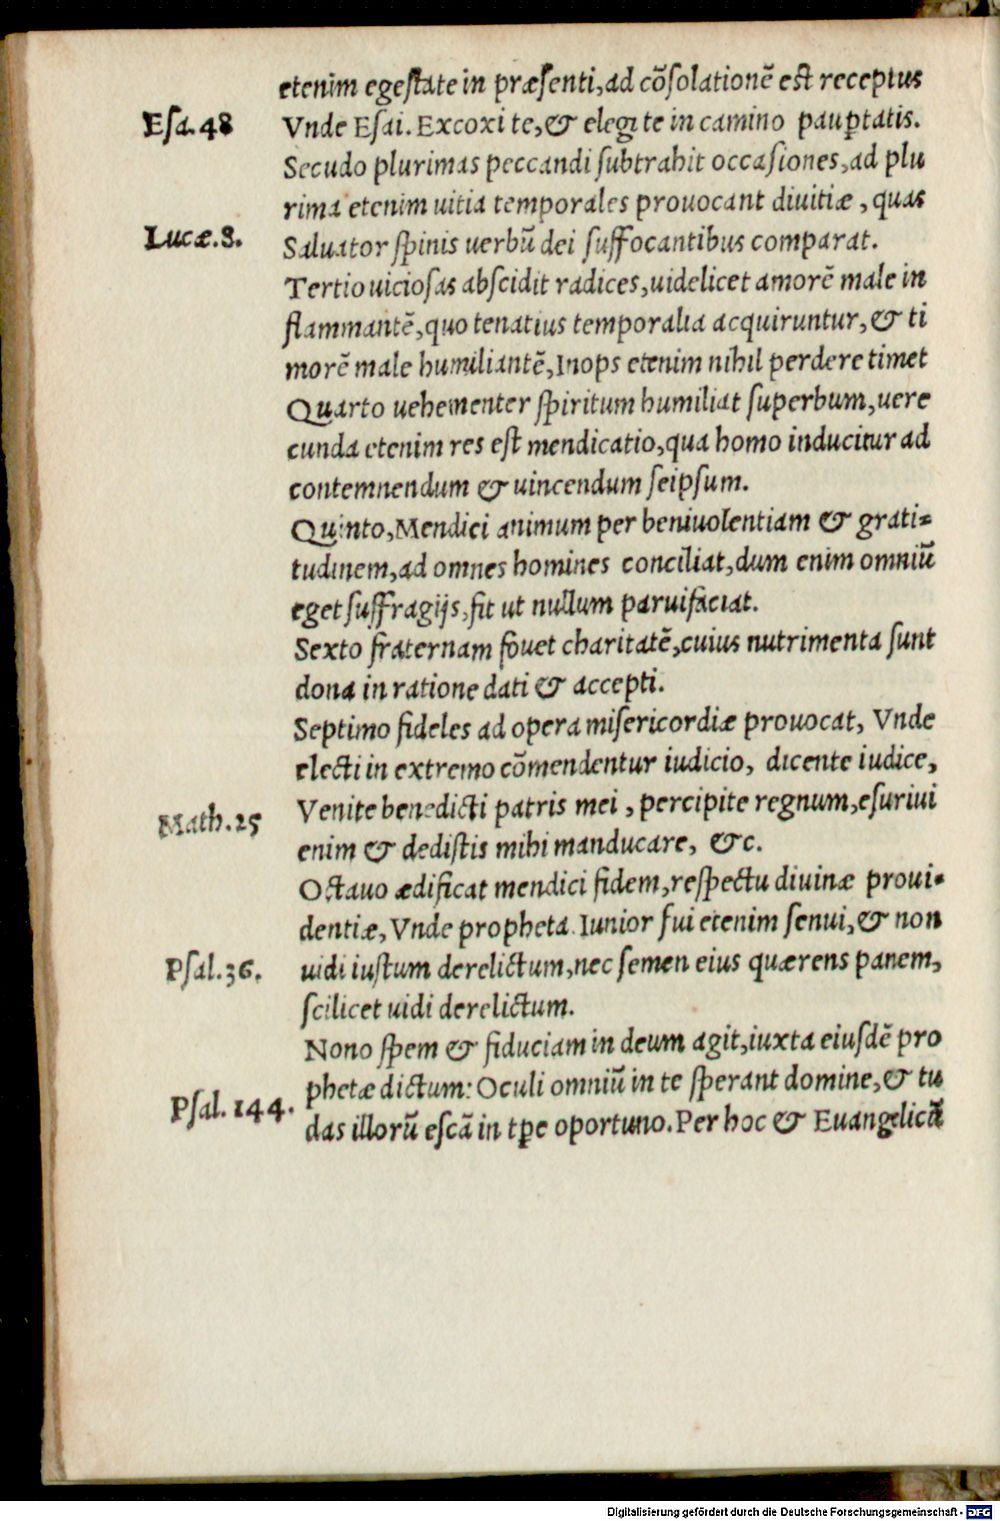 etenim egestate in præsenti, ad cõsolationẽ est receptus
Esa. 48
Vnde Esai. Excoxi te, & elegi te in camino pauꝑtatis.
Secudo plurimas peccandi subtrahit occasiones, ad plu
rima etenim uitia temporales prouocant diuitiæ, quas
Lucæ. 8.
Saluator spinis uerbũ dei suffocantibus comparat.
Tertio uiciosas abscidit radices, uidelicet amorẽ male in
flammantẽ, quo tenatius temporalia acquiruntur, & ti
morẽ male humiliantẽ, Inops etenim nihil perdere timet
Quarto uehementer spiritum humiliat superbum, uere
cunda etenim res est mendicatio, qua homo inducitur ad
contemnendum & uincendum seipsum.
Quinto, Mendici animum per beniuolentiam & grati⸗
tudinem, ad omnes homines conciliat, dum enim omniũ
eget suffragijs, fit ut nullum paruifaciat.
Sexto fraternam fouet charitatẽ, cuius nutrimenta sunt
dona in ratione dati & accepti.
Septimo fideles ad opera misericordiæ prouocat, Vnde
electi in extremo cõmendentur iudicio, dicente iudice,
Math. 25
Venite benedicti patris mei, percipite regnum, esuriui
enim & dedistis mihi manducare, &c.
Octauo ædificat mendici fidem, respectu diuinæ proui⸗
dentiæ, Vnde propheta. Iunior fui etenim senui, & non
Psal. 36.
uidi iustum derelictum, nec semen eius quærens panem,
scilicet uidi derelictum.
Nono spem & fiduciam in deum agit, iuxta eiusdẽ pro
phetæ dictum: Oculi omniũ in te sperant domine, & tu
Psal. 144.
das illorũ escã in tꝑe oportuno. Per hoc & Euangelicũ
Digitalisierung gefördert durch die Deutsche Forschungsgemeinschaft - DFG